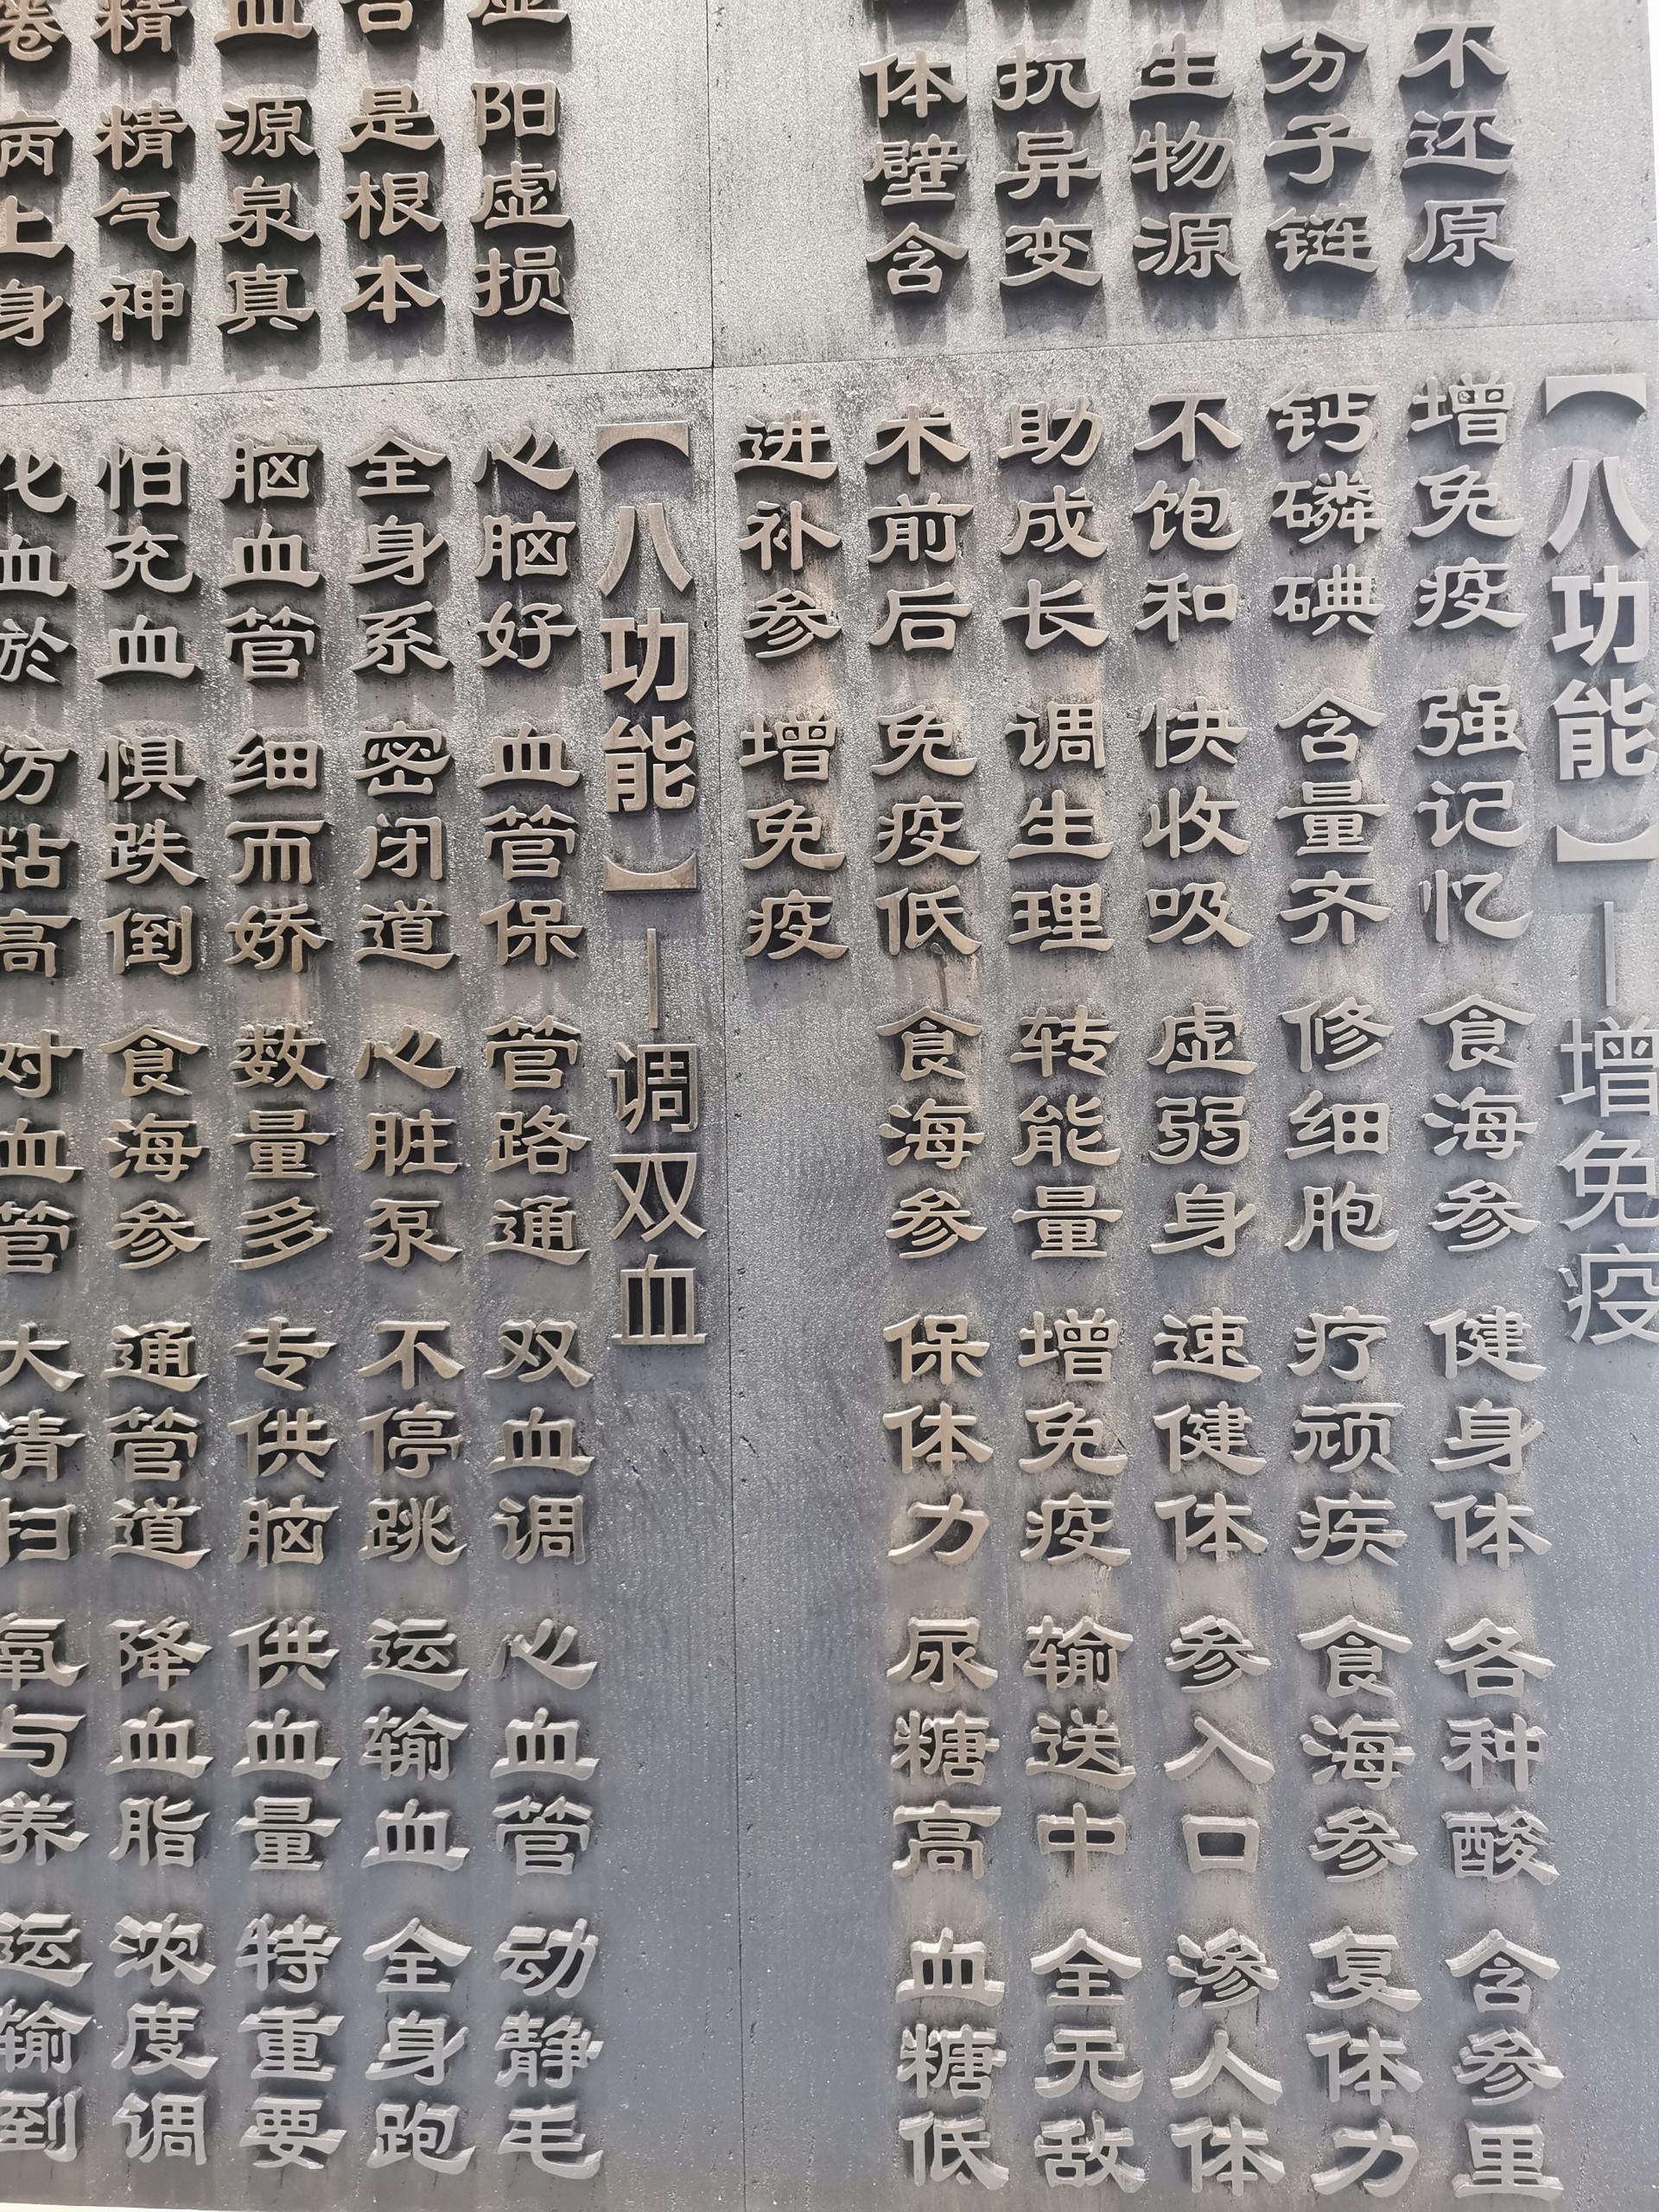 不还原
分子链
生物源
抗异变
体壁含
【八功能】—增免疫
增免疫 强记忆 食海参 健身体 各种酸 含参里
钙磷碘 含量齐 修细胞 疗顽疾 食海参 复体力
不饱和 快收吸 虚弱身 速健体 参入口 渗人体
助成长 调生理 转能量 增免疫 输送中 全无敌
术前后 免疫低 食海参 保体力 尿糖高 血糖低
进补参 增免疫
虚 阳虚损
是根本
血 源泉真
精 精气神
病上身
【八功能】—调双血
心脑好 血管保 管路通 双血调 心血管 动静毛
全身系 密闭道 心脏泵 不停跳 运输血 全身跑
脑血管 细而娇 数量多 专供脑 供血量 特重要
怕充血 惧跌倒 食海参 通管道 降血脂 浓度调
化血於 防粘高 对血管 大清扫 氧与养 运输到